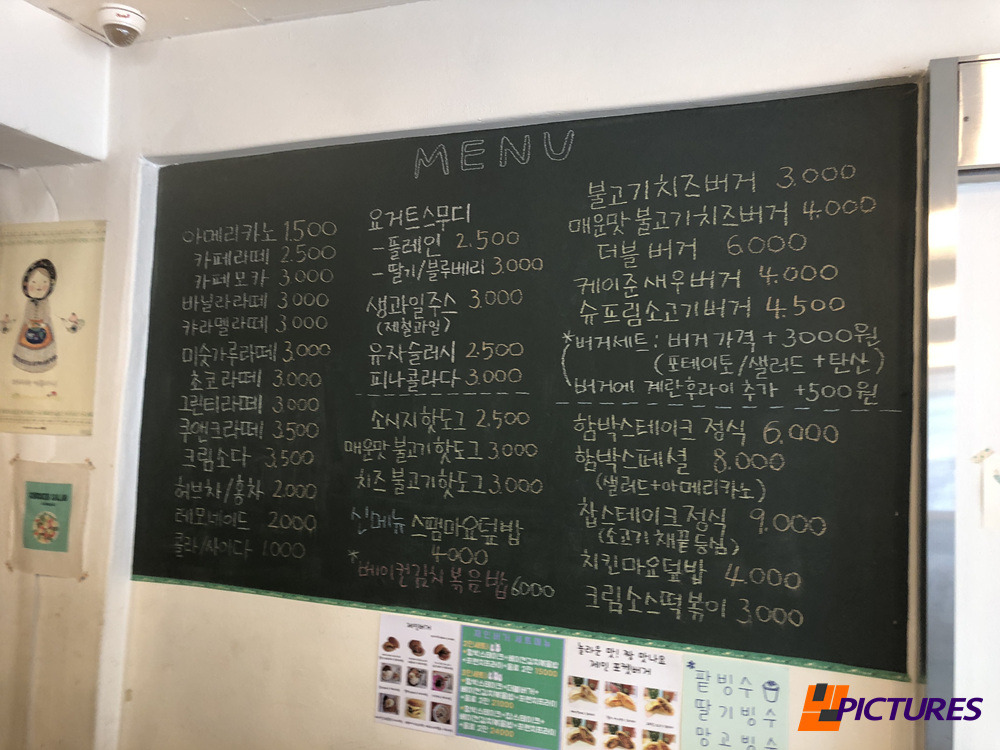 MENU
아메리카노 1.500
카페라떼 2.500
카페모카 3.000
바닐라라떼 3.000
캬라멜라떼 3.000
미숫가루라떼 3.000
초코라떼 3.000
그린티라떼 3.000
쿠앤크라떼 3.500
크림소다 3.500
허브차/홍차 2.000
레모네이드 2.000
콜라/싸이다 1.000
요거트스무디
-플레인 2.500
-딸기/블루베리 3.000
생과일주스 3.000
(제철과일)
유자슬러시 2.500
피나콜라다 3.000
소시지핫도그 2.500
매운맛불고기핫도그 3.000
치즈불고기핫도그 3.000
신메뉴 스팸마요덮밥
4000
*베이컨김치볶음밥 6000
불고기치즈버거 3.000
매운맛불고기치즈버거 4.000
더블버거 6.000
케이준새우버거 4.000
슈프림소고기버거 4.500
*버거세트: 버거가격+3000원
(포테이토/샐러드+탄산)
버거에 계란후라이 추가 +500원
함박스테이크정식 6.000
함박스페셜 8.000
(샐러드+아메리카노)
찹스테이크정식 9.000
(소고기채끝등심)
치킨마요덮밥 4.000
크림소스떡볶이 3.000
제인버거
2인 15000
2인 21000
2인 24000
놀라운 맛! 짱 맛나요
제인 포켓버거
*팥빙수
딸기빙수
망고빙수
PICTURES